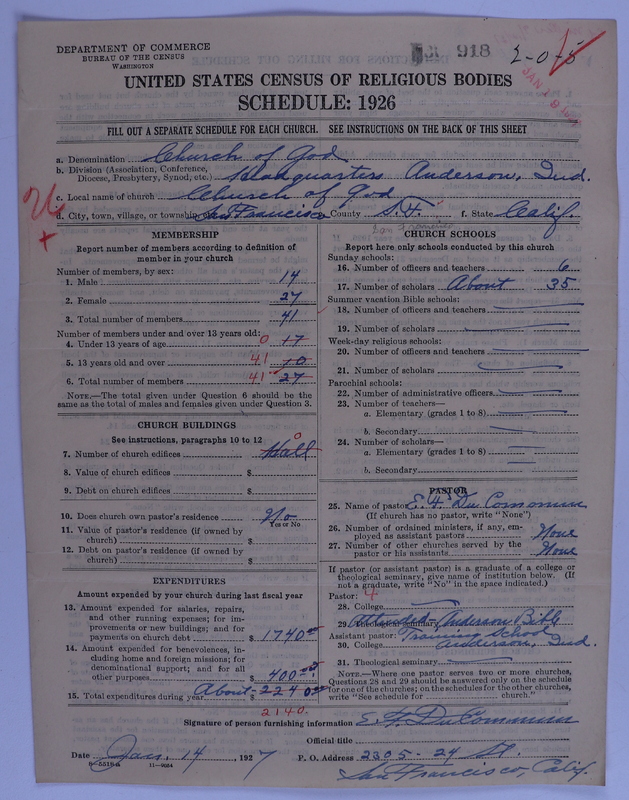 DEPARTMENT OF COMMERCE
BUREAU OF THE CENSUS
WASHINGTON
918
2-0-5
JAN 18
UNITED STATES CENSUS OF RELIGIOUS BODIES
SCHEDULE: 1926
FILL OUT A SEPARATE SCHEDULE FOR EACH CHURCH. SEE INSTRUCTIONS ON THE BACK OF THIS SHEET
a. Denomination Church of God
b. Division (Association, Conference, Diocese, Presbytery, Synod, etc.) Headquarters Anderson, Ind.
c. Local name of church Church of God
d. City, town, village, or township San Francisco County S.F. f. State Calif.
San Francisco
MEMBERSHIP
Report number of members according to definition of member in your church
Number of members, by sex:
1. Male 14
2. Female 27
3. Total number of members 41
Number of members under and over 13 years old:
4. Under 13 years of age 0 17
5. 13 years old and over 41 10
6. Total number of members 41 27
NOTE.—The total given under Question 6 should be same as the total of males and females given under Question 3.
CHURCH BUILDINGS
See instructions, paragraphs 10 to 12
7. Number of church edifices Hall 0
8. Value of church edifices $
9. Debt on church edifices $
10. Does church own pastor's residence No
Yes or No
11. Value of pastor's residence (if owned by church) $
12. Debt on pastor's residence (if owned by church) $
EXPENDITURES
Amount expended by your church during last fiscal year
13. Amount expended for salaries, repairs, and other running expenses; for improvements or new buildings; and for payments on church debt $ 1740.00
14. Amount expended for benevolences, including home and foreign missions; for denominational support; and for all other purposes $ 400.00
15. Total expenditures during year About 2240.00
2140.
CHURCH SCHOOLS
Report here only schools conducted by this church
Sunday schools:
16. Number of officers and teachers 6
17. Number of scholars About 35
Summer vacation Bible schools:
18. Number of officers and teachers
19. Number of scholars
Week-day religious schools:
20. Number of officers and teachers
21. Number of scholars
Parochial schools:
22. Number of administrative officers
23. Number of teachers—
a. Elementary (grades 1 to 8)
b. Secondary
24. Number of scholars—
a. Elementary (grades 1 to 8)
b. Secondary
PASTOR
25. Name of pastor E. F. Du Commun
(If church has no pastor, write "None")
26. Number of ordained ministers, if any, employed as assistant pastors None
27. Number of other churches served by the pastor or his assistants None
If pastor (or assistant pastor) is a graduate of a college or theological seminary, give name of institution below. (If not a graduate, write "No" in the space indicated.)
Pastor: 4
28. College
29. Theological seminary Anderson Bible
Assistant pastor: Training School
30. College Anderson, Ind.
31. Theological seminary
NOTE.—Where one pastor serves two or more churches, Questions 28 and 29 should be answered only on the schedule for one of the churches; on the schedules for the other churches, write "See schedule for church."
Signature of person furnishing information E. F. Du Commun
Official title
Date Jan. 14, 1927 P. O. Address 2305 - 24 St.
San Francisco, Calif.
11—9024